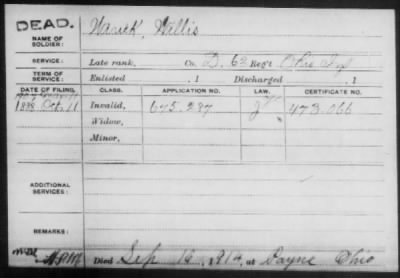 DEAD.
NAME OF SOLDIER: Warick, Willis
SERVICE: Late rank, Co. D. 63 Reg't Ohio Inf
TERM OF SERVICE: Enlisted , 1 Discharged , 1
DATE OF FILING. CLASS. APPLICATION NO. LAW. CERTIFICATE NO.
1888 Oct. 11 Invalid, 675.287 473.066
Widow,
Minor,
ADDITIONAL SERVICES:
REMARKS:
Died Sep 16, 1914, at Payne Ohio